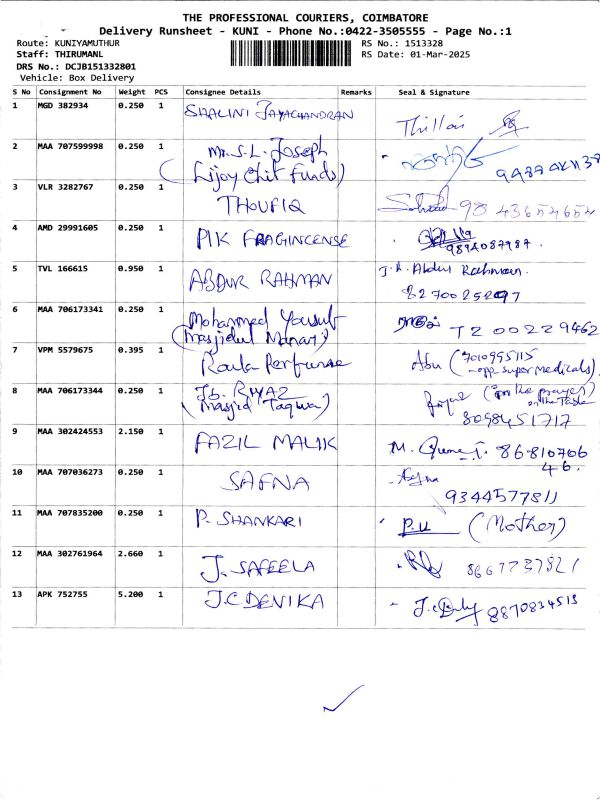 THE PROFESSIONAL COURIERS, COIMBATORE
Delivery Runsheet - KUNI - Phone No.:0422-3505555 - Page No.:1
Route: KUNIYAMUTHUR RS No.: 1513328
Staff: THIRUMANL RS Date: 01-Mar-2025
DRS No.: DCJB151332801
Vehicle: Box Delivery
S No Consignment No Weight PCS Consignee Details Remarks Seal & Signature
1 MGD 382934 0.250 1 SHALINI JAYACHANDRAN Thillai
2 MAA 707599998 0.250 1 Mr. S.L. Joseph
(Lijoy Chit Funds)
3 VLR 3282767 0.250 1 THOUFIQ 98 43654654
4 AMD 29991605 0.250 1 PIK FRAGINCENSE
9894087987.
5 TVL 166615 0.950 1 ABDUR RAHMAN J.A. Abdul Rahman.
6 MAA 706173341 0.250 1 Mohammed Yousuf
(Masjidul Manar) 00229462
7 VPM 5579675 0.395 1 Raula Perfumse Abu (7010955115
- opp super medicals)
8 MAA 706173344 0.250 1 Jb. RIYAZ
(Masjid Taqwa) 8098451717
9 MAA 302424553 2.150 1 FAZIL MALIK M. 86-810706
46.
10 MAA 707036273 0.250 1 SAFNA Safna
9344577811
11 MAA 707835200 0.250 1 P. SHANKARI (Mother)
12 MAA 302761964 2.660 1 J. SAFEELA 8667737821
13 APK 752755 5.200 1 J.C DEVIKA 8870834513